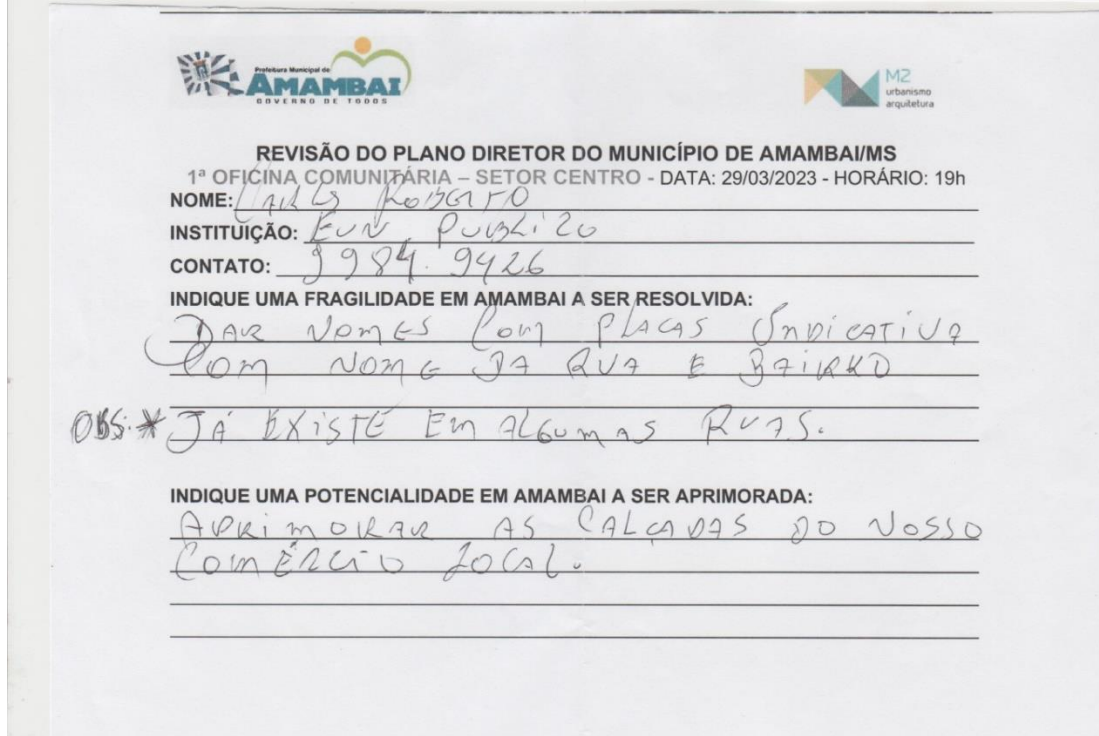 Prefeitura Municipal de
AMAMBAI
GOVERNO DE TODOS
M2
urbanismo
arquitetura
REVISÃO DO PLANO DIRETOR DO MUNICÍPIO DE AMAMBAI/MS
1ª OFICINA COMUNITÁRIA – SETOR CENTRO - DATA: 29/03/2023 - HORÁRIO: 19h
NOME: CARLOS ROBERTO
INSTITUIÇÃO: FUN PUBLICO
CONTATO: 9984.9426
INDIQUE UMA FRAGILIDADE EM AMAMBAI A SER RESOLVIDA:
DAR NOMES COM PLACAS INDICATIVA
COM NOME DA RUA E BAIRRO
OBS:* JÁ EXISTE EM ALGUMAS RUAS.
INDIQUE UMA POTENCIALIDADE EM AMAMBAI A SER APRIMORADA:
APRIMORAR AS CALÇADAS DO NOSSO
COMÉRCIO LOCAL.